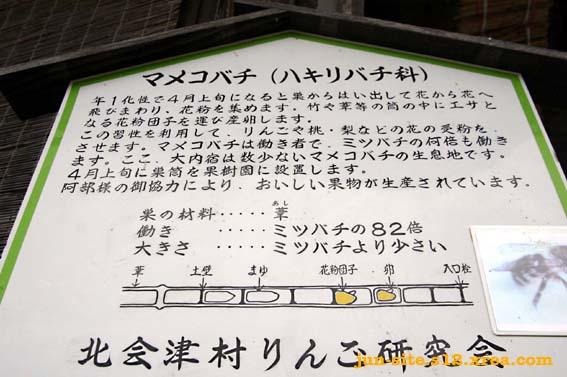 マメコバチ（ハキリバチ科）
年1化性で4月上旬になると巣からはい出して花から花へ
飛びまわり、花粉を集めます。竹や葦等の筒の中にエサと
なる花粉団子を運び産卵します。
この習性を利用して、りんごや桃・梨などの花の受粉を、
させます。マメコバチは働き者で、ミツバチの何倍も働き
ます。ここ、大内宿は数少ないマメコバチの生息地です。
4月上旬に巣筒を果樹園に設置します。
阿部様の御協力により、おいしい果物が生産されています。
巣の材料‥‥‥葦
あし
働き‥‥‥ミツバチの82倍
大きさ‥‥‥ミツバチより少さい
葦 土壁 まゆ 花粉団子 卵 入口栓
北会津村りんご研究会
jun-site.s18.xrea.com